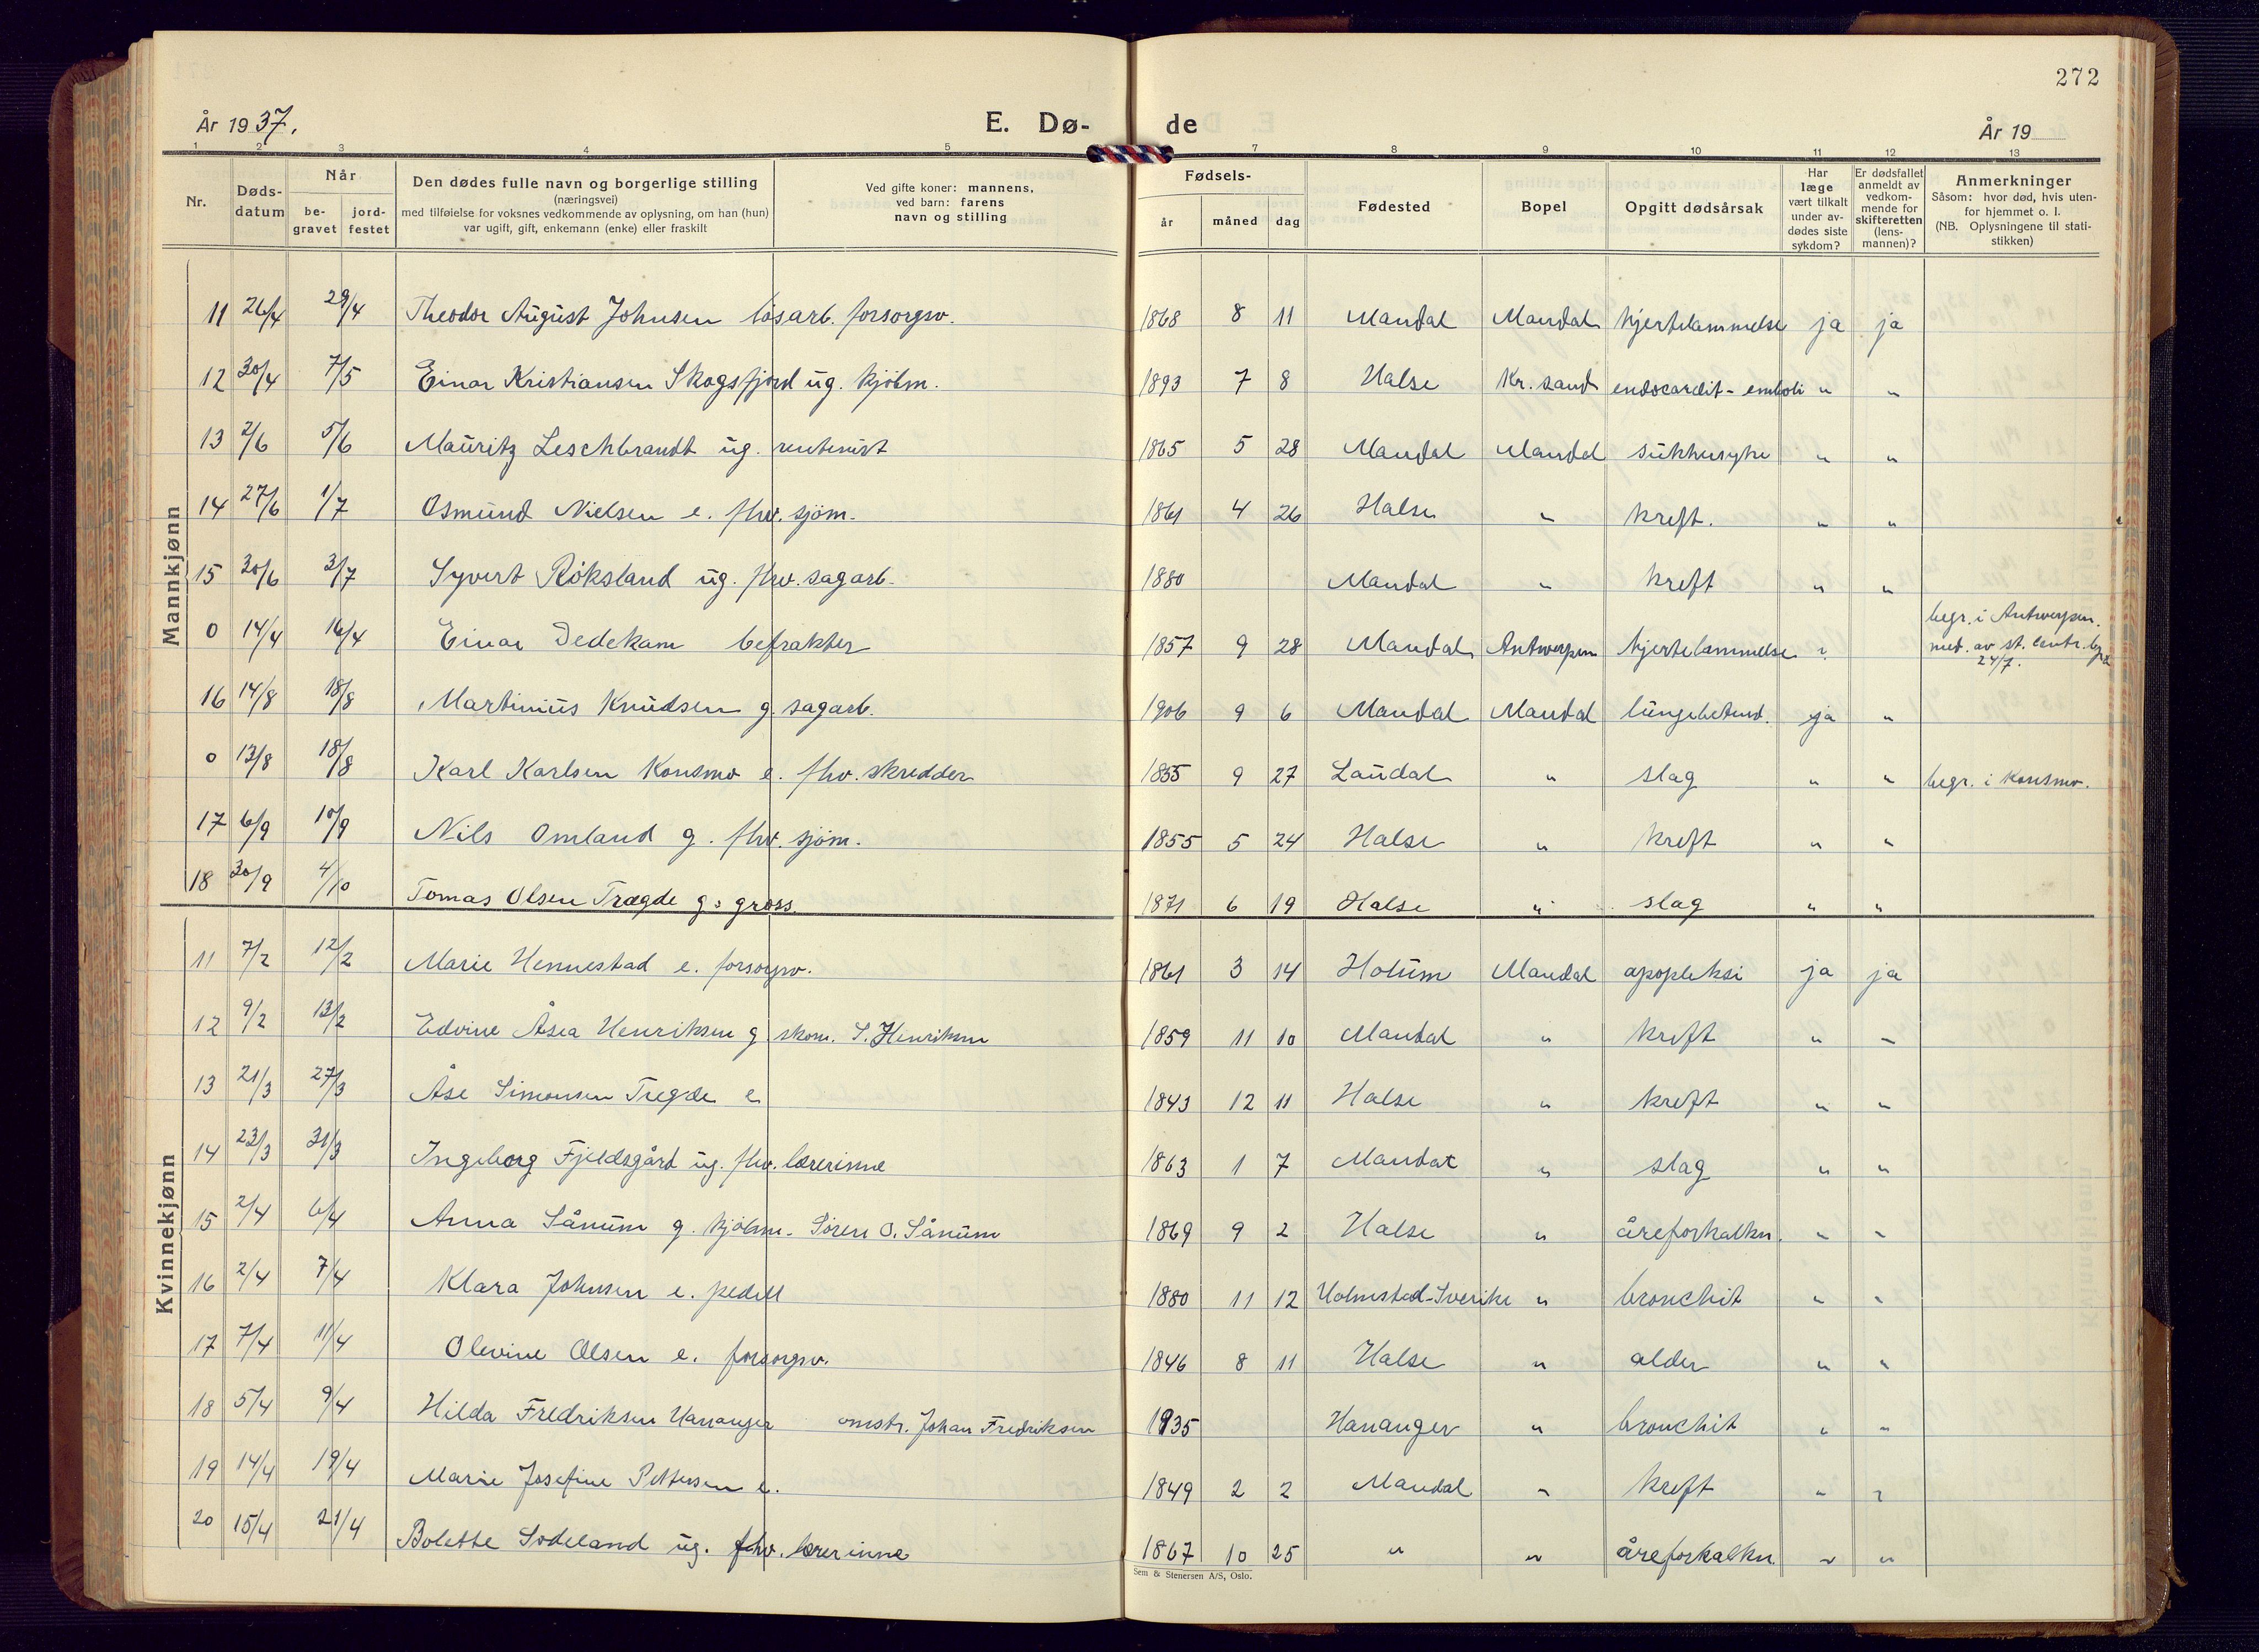 272
År 1937.
E. Dø-de
År 19
1 2 3 4 5 7 8 9 10 11 12 13
Nr.
Døds-datum
Når
be-gravet
jord-festet
Den dødes fulle navn og borgerlige stilling
(næringsvei)
med tilføielse for voksnes vedkommende av oplysning, om han (hun)
var ugift, gift, enkemann (enke) eller fraskilt
Ved gifte koner: mannens,
ved barn: farens
navn og stilling
Fødsels-
år måned dag
Fødested
Bopel
Opgitt dødsårsak
Har læge vært tilkalt under av-dødes siste sykdom?
Er dødsfallet anmeldt av vedkom-mende for skifteretten (lens-mannen)?
Anmerkninger
Såsom: hvor død, hvis uten-for hjemmet o. l.
(NB. Oplysningene til stati-stikken)
Mannkjønn
11 26/4 29/4 Theodor August Johnsen løsarb. forsorgsv. 1868 8 11 Mandal Mandal hjertelammelse ja ja
12 30/4 7/5 Einar Kristiansen Skogsfjord ug. kjøbm. 1893 7 8 Halse Kr. sand endocardit - emboli " "
13 2/6 5/6 Mauritz Leschbrandt ug. rentenist 1865 5 28 Mandal Mandal sukkersyke " "
14 27/6 1/7 Osmund Nielsen e. fhv. sjøm. 1861 4 26 Halse " kreft. " "
15 30/6 3/7 Syvert Røksland ug. fhv. sagarb. 1880 Mandal " kreft " "
0 14/4 16/4 Einar Dedekam befrakter 1857 9 28 Mandal Antwerpen hjertelammelse ? begr. i Antwerpen.
med. av st. centr. 24/7.
16 14/8 18/8 Martinius Knudsen g. sagarb. 1906 9 6 Mandal Mandal lungebetend. ja "
0 13/8 18/8 Karl Karlsen Konsmo e. fhv. skredder 1855 9 27 Laudal " slag " " begr. i Konsmo.
17 6/9 10/9 Nils Omland g. fhv. sjøm. 1855 5 24 Halse " kreft " "
18 30/9 4/10 Tomas Olsen Trægde g. gross. 1871 6 19 Halse " slag " "
Kvinnekjønn
11 7/2 12/2 Marie Hennestad e. forsorgsv. 1861 3 14 Holum Mandal apopleksi ja ja
12 9/2 13/2 Edvine Åsea Henriksen g skom. S. Henriksen 1859 11 10 Mandal " kreft " "
13 21/3 27/3 Åse Simonsen Tregde e 1843 12 11 Halse " kreft " "
14 23/3 31/3 Ingeborg Fjeldsgård ug. fhv. lærerinne 1863 1 7 Mandal " slag " "
15 2/4 6/4 Anna Sånum g. kjøbm. Søren O. Sånum 1869 9 2 Halse " åreforkalkn. " "
16 2/4 7/4 Klara Johnsen e. pedell 1880 11 12 Halmstad-Sverike " bronchit " "
17 7/4 11/4 Olevine Olsen e. forsorgsv. 1846 8 11 Halse " alder " "
18 5/4 9/4 Hilda Fredriksen Hananger omstr. Johan Fredriksen 1935 Hananger " bronchit " "
19 14/4 19/4 Marie Josefine Pettersen e. 1849 2 2 Mandal " kreft " "
20 15/4 21/4 Bolette Sodeland ug. fhv. lærerinne 1867 10 25 " " åreforkalkn. " "
Sem & Stenersen A/S, Oslo.